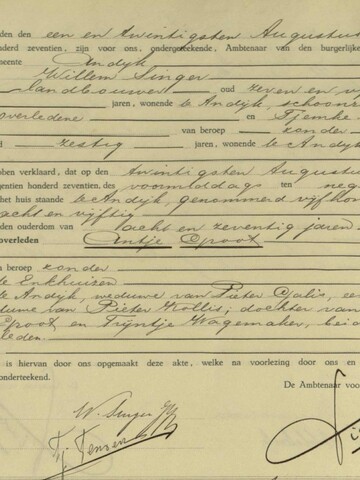 den den een en twintigsten Augustus
nderd zeventien, zijn voor ons, ondergeteekende, Ambtenaar van den burgerlijke
eente Andyk
Willem Singer
landbouwer oud zeven en vij
jaren, wonende te Andyk, schoon
overledene en Tjemke
van beroep zonder
zestig jaren, wonende te Andyk
ben verklaard, dat op den twintigsten Augustus
gentien honderd zeventien, des voormiddags ten neg
het huis staande te Andyk, genommerd vijfhon
acht en vijftig
den ouderdom van acht en zeventig jaren
overleden Antje Groot
n beroep zonder
te Enkhuizen
te Andyk, weduwe van Pieter
duwe van Pieter Kollis; dochter van
Groot en Trijntje Wagemaker, bei
leden.
is hiervan door ons opgemaakt deze akte, welke na voorlezing door ons en
onderteekend.
De Ambtenaar voo
W. Singer
Tj. Jensen